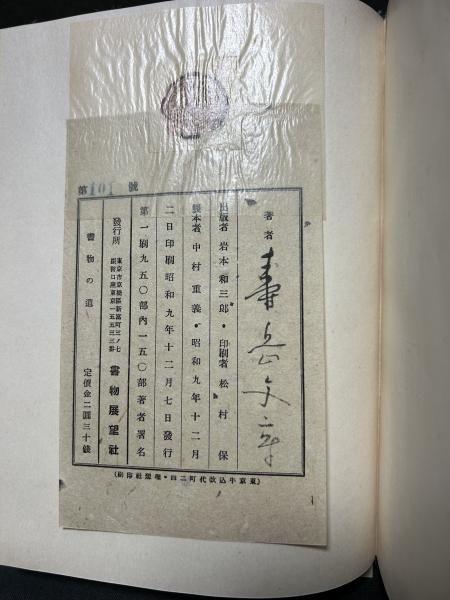 第101號
著者 壽岳文章
出版者 岩本和三郎・印刷者 松村保
製本者 中村重義・昭和九年十二月
二日印刷昭和九年十二月七日發行
第一刷九五〇部內一五〇部著者署名
發行所
東京市京橋區新富町三ノ七
振替口座東京一五五三三番
書物展望社
書物の道
定價金二圓三十錢
(東京牛込改代町二四・理想社印刷)